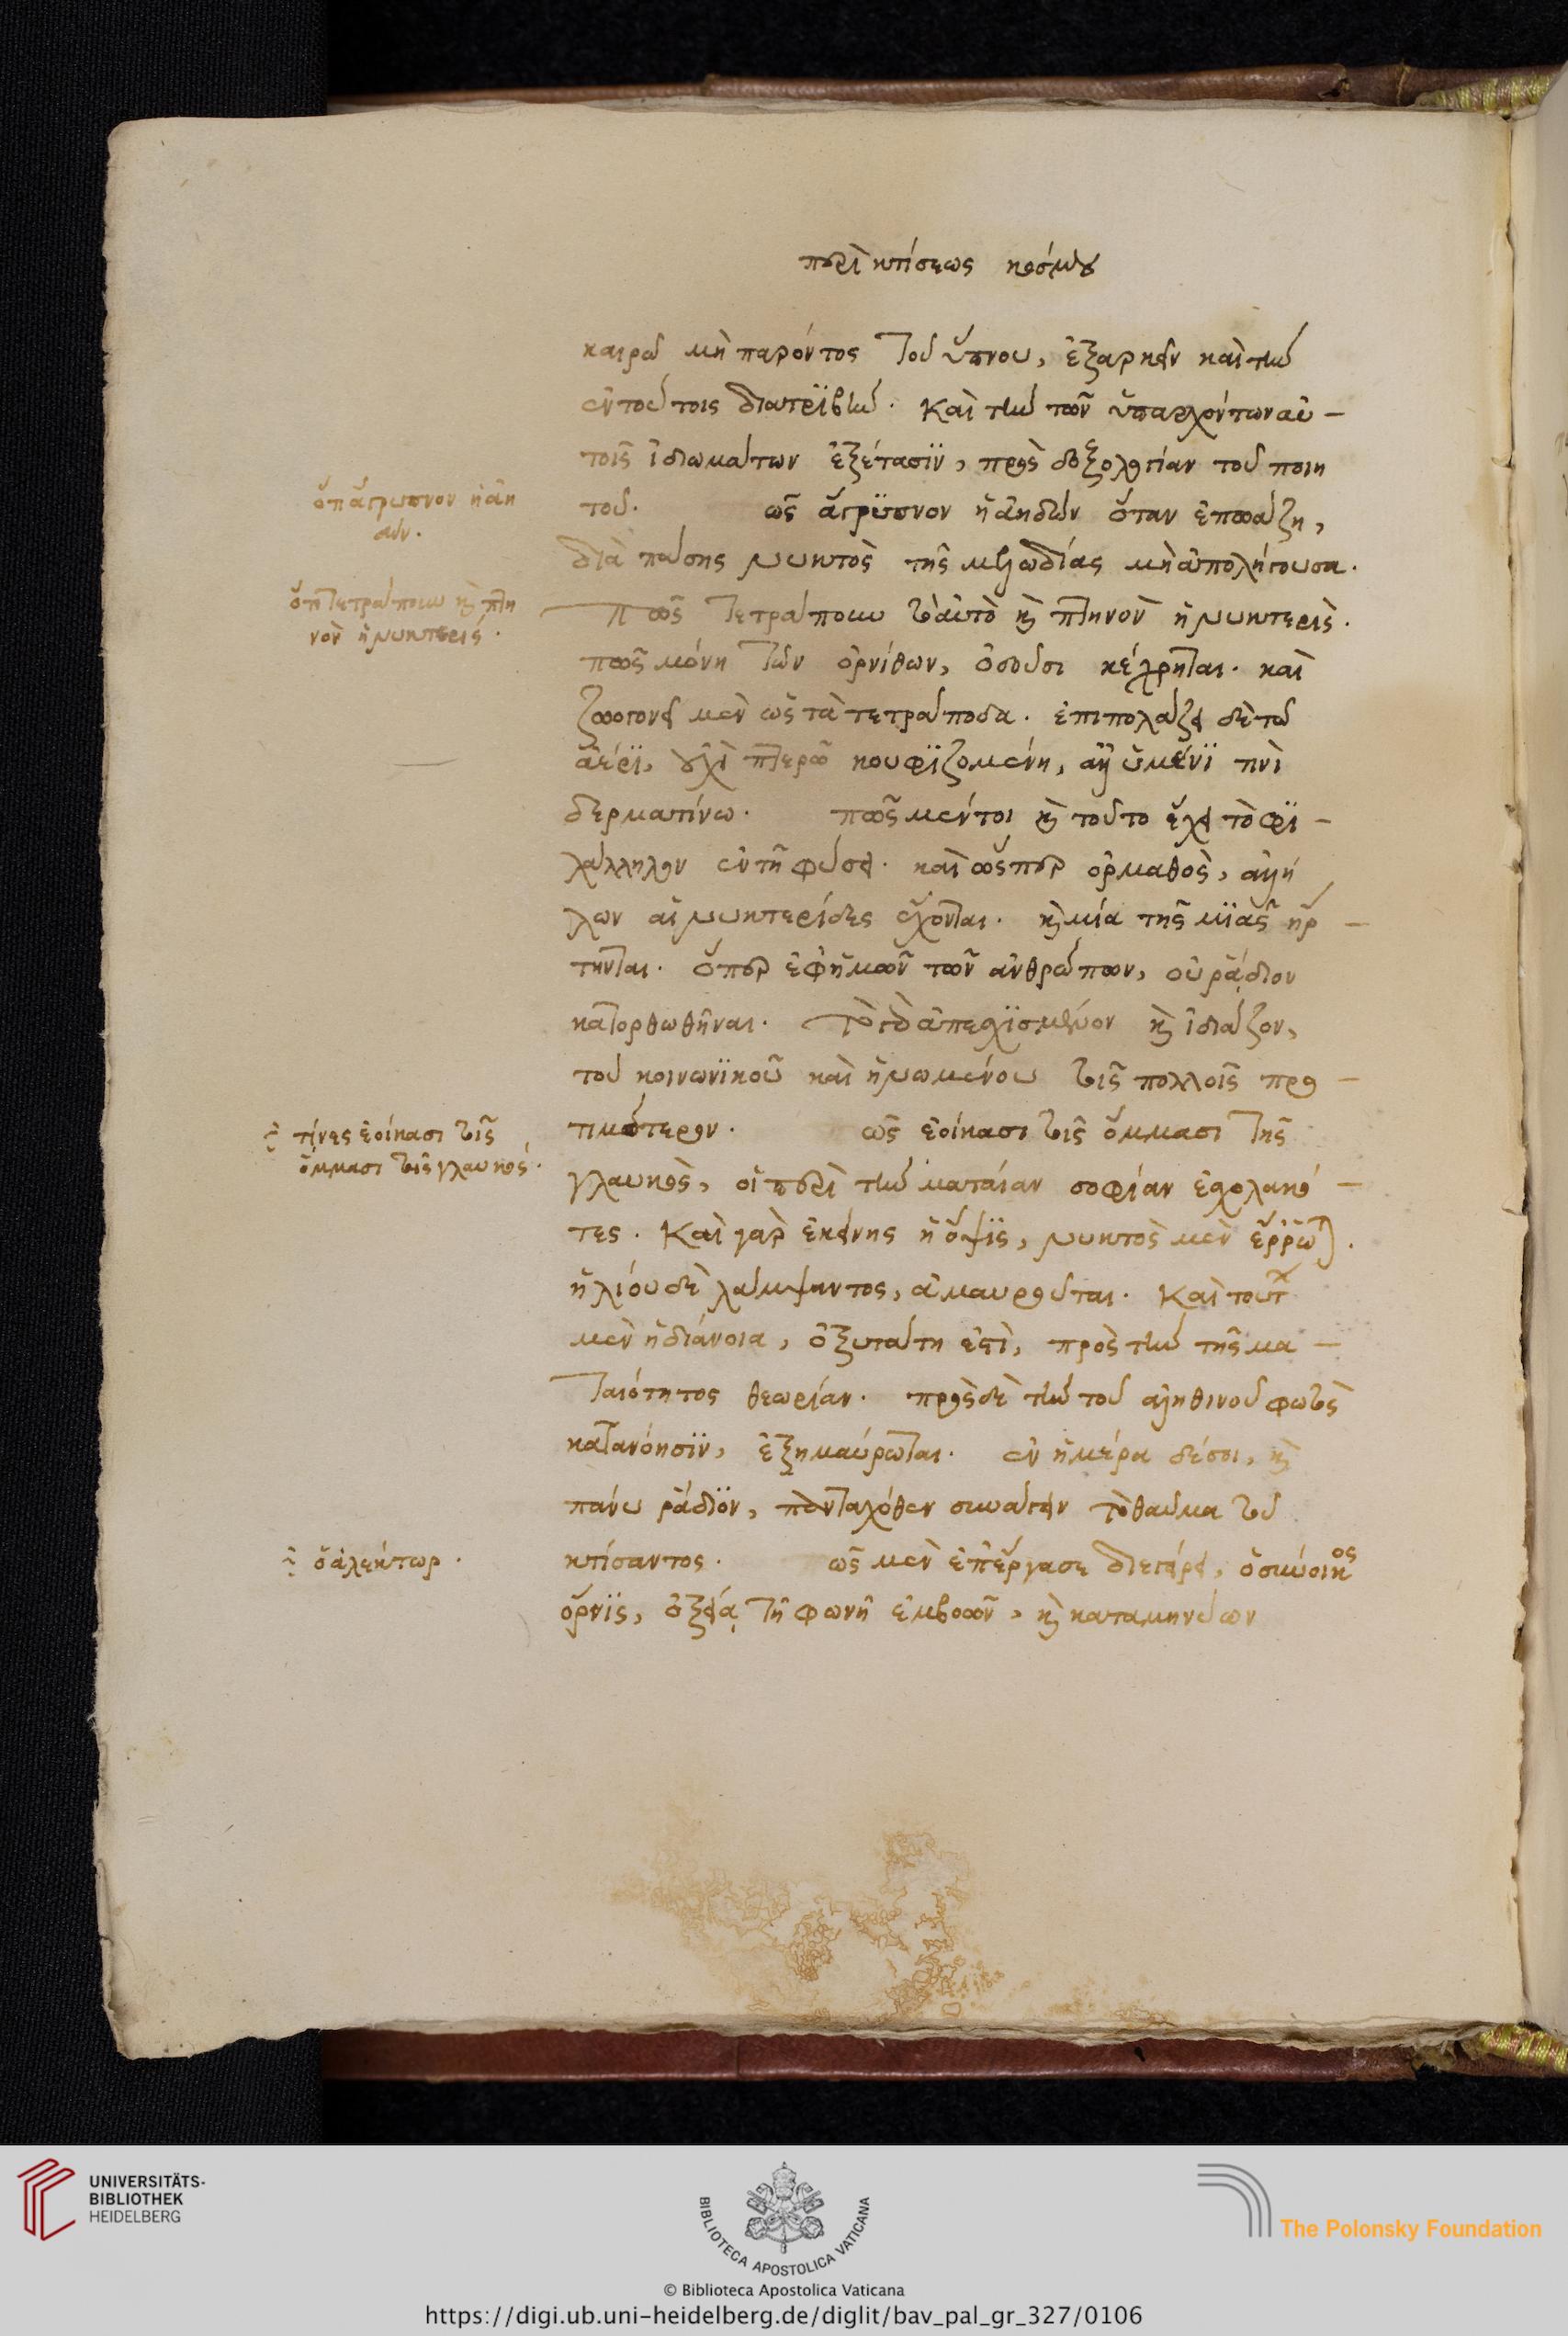 περὶ κτίσεως κόσμου
καιροῦ μὴ παρόντος τοῦ ὕπνου, ἐξαρκεῖν καὶ τὴν
ἐν τούτοις διατριβήν. Καὶ τὴν τῶν ὑπαρχόντων αὐ-
τοῖς ἰδιωμάτων ἐξέτασϊν, πρὸς δοξολογίαν τοῦ ποιη
τοῦ. ὡς ἄγρϋπνον ἡ ἀηδὼν ὅταν ἐπωάζη,
διὰ πάσης νυκτὸς τῆς μελωδίας μὴ ἀπολήγουσα.
Πῶς τετράπουν τὸ αὐτὸ καὶ πτηνὸν ἡ νυκτερὶς.
πῶς μόνη τῶν ὀρνίθων, ὀδοῦσι κέχρηται. καὶ
ζωογονεῖ μὲν ὡς τὰ τετράποδα. ἐπιπολάζει δὲ τῶ
ἀέρϊ, οὐχὶ πτερῶ κουφϊζομένη, ἀλλ' ὑμένϊ τινὶ
δερματίνω. πῶς μέντοι καὶ τοῦτο ἔχει τὸ φϊ-
λάλληλον ἐν τῆ φύσει. καὶ ὥσπερ ὁρμαθὸς, ἀλλή
λων αἱ νυκτερίδες ἔχονται. καὶ μία τῆς μϊᾶς ἤρ-
τηνται. ὅπερ ἐφ' ἡμῶν τῶν ἀνθρώπων, οὐ ῥάδιον
κατορθωθῆναι. τὸ γὰρ ἀπεσχϊσμένον καὶ ἰδιάζον,
τοῦ κοινωνϊκοῦ καὶ ἡνωμένου τοῖς πολλοῖς προ-
τιμότερον. ὡς ἐοίκασι τοῖς ὄμμασι τῆς
γλαυκὸς, οἱ περὶ τὴν ματαίαν σοφίαν ἐσχολακό-
τες. Καὶ γὰρ ἐκείνης ἡ ὄψϊς, νυκτὸς μὲν ἔρρωται.
ἡλίου δὲ λάμψαντος, ἀμαυροῦται. Καὶ τούτων
μὲν ἡ διάνοια, ὀξυτάτη ἐστὶ, πρὸς τὴν τῆς μα-
ταιότητος θεωρίαν. πρὸς δὲ τὴν τοῦ ἀληθινοῦ φωτὸς
κατανόησϊν, ἐξημαύρωται. ἐν ἡμέρα δέ σοι, καὶ
πάνυ ῥάδϊον, πανταχόθεν συνάγειν τὸ θαῦμα τοῦ
κτίσαντος. ὡς μὲν ἐπ' ἔργα σε διεγείρει, ὁ σύνοικος
ὄρνϊς, ὀξεία τῆ φωνῆ ἐμβοῶν, καὶ καταμηνύων
ὅτι ἄγρυπνον ἡ ἀη
δών.
ὅτι τετράπουν καὶ πτη
νὸν ἡ νυκτερίς.
τίνες ἐοίκασι τοῖς
ὄμμασι τοῖς γλαυκός.
ὁ ἀλέκτωρ.
UNIVERSITÄTS-
BIBLIOTHEK
HEIDELBERG
BIBLIOTECA APOSTOLICA VATICANA
© Biblioteca Apostolica Vaticana
The Polonsky Foundation
https://digi.ub.uni-heidelberg.de/diglit/bav_pal_gr_327/0106